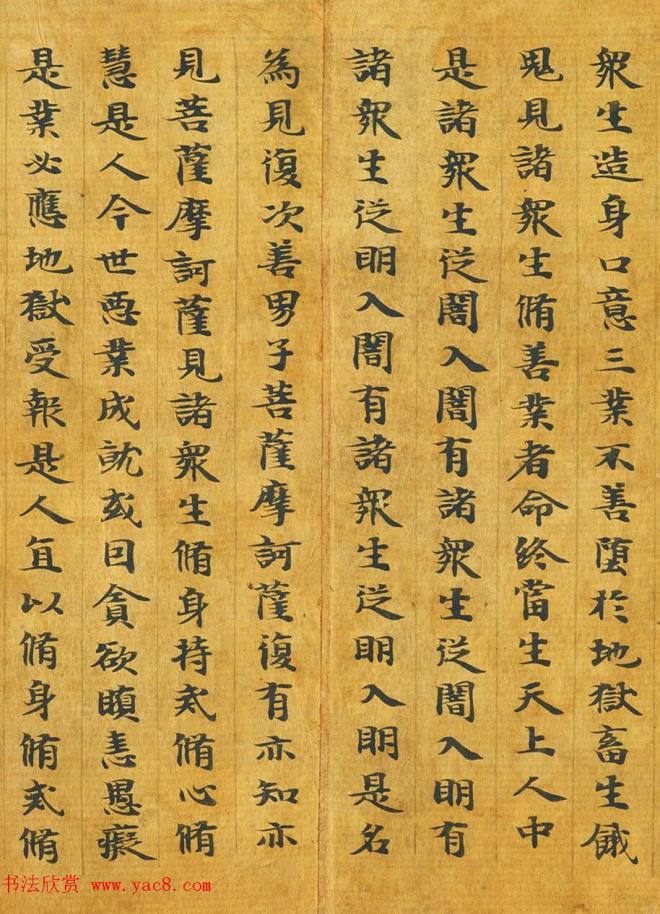 眾生造身口意三業不善墮於地獄畜生餓
鬼見諸眾生脩善業者命終當生天上人中
是諸眾生從闇入闇有諸眾生從闇入明有
諸眾生從明入闇有諸眾生從明入明是名
為見復次善男子菩薩摩訶薩復有亦知亦
見菩薩摩訶薩見諸眾生脩身持戒脩心脩
慧是人今世惡業成就或因貪欲瞋恚愚癡
是業必應地獄受報是人直以脩身脩戒脩
书法欣赏 www.yac8.com